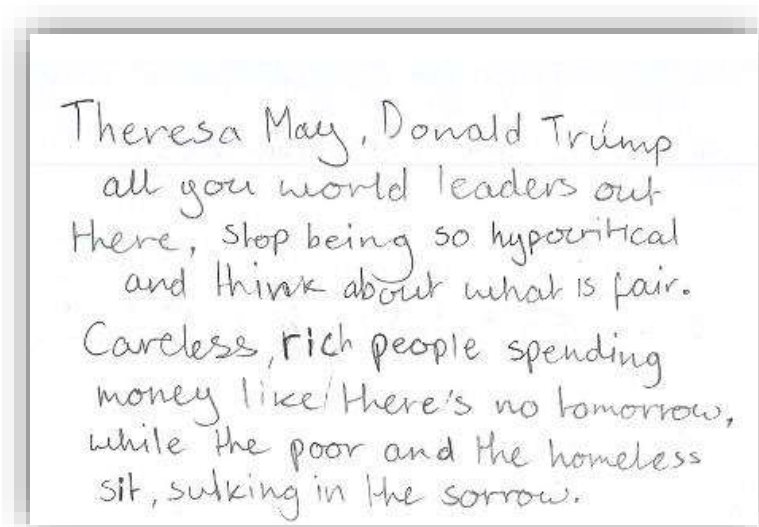 Theresa May, Donald Trump
all you world leaders out
there, stop being so hypocritical
and think about what is fair.
Careless, rich people spending
money like there's no tomorrow,
while the poor and the homeless
sit, sulking in the sorrow.